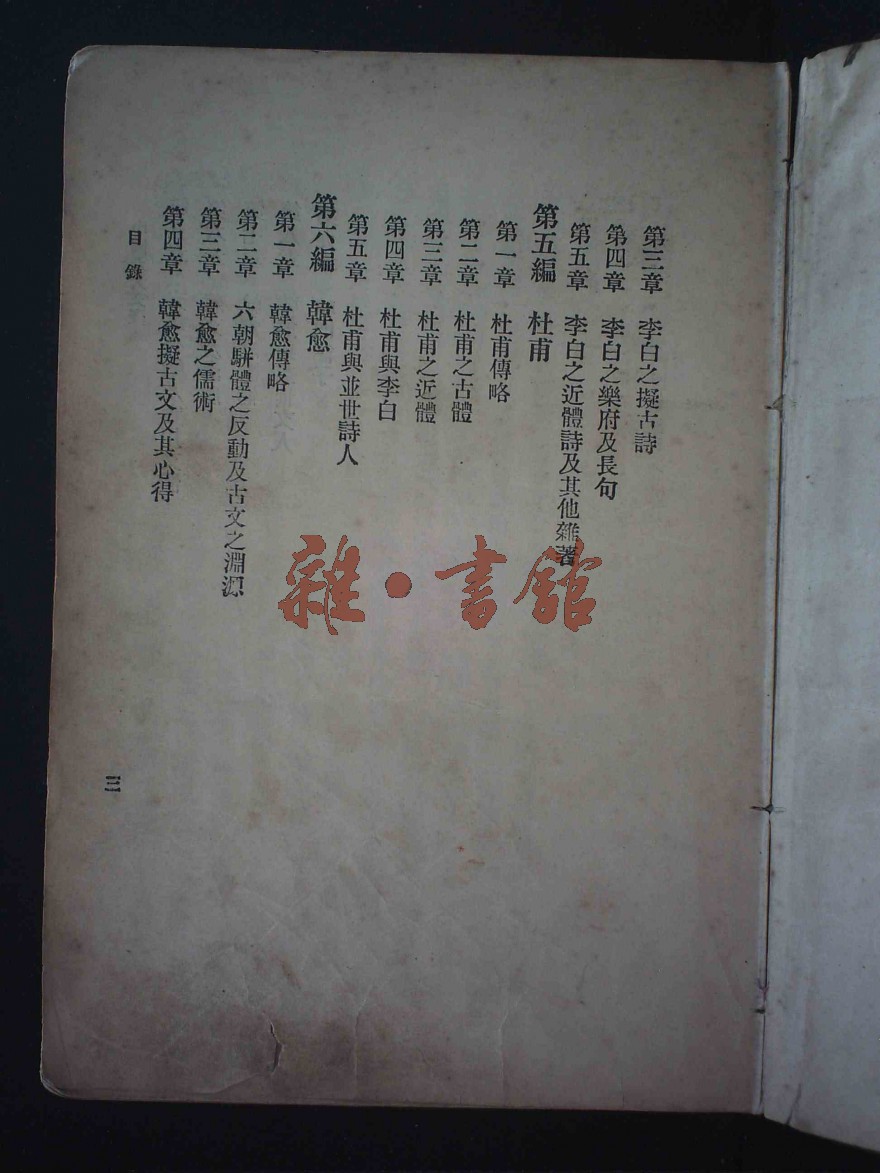 第三章　李白之擬古詩
第四章　李白之樂府及長句
第五章　李白之近體詩及其他雜著
第五編　杜甫
第一章　杜甫傳略
第二章　杜甫之古體
第三章　杜甫之近體
第四章　杜甫與李白
第五章　杜甫與並世詩人
第六編　韓愈
第一章　韓愈傳略
第二章　六朝駢體之反動及古文之淵源
第三章　韓愈之儒術
第四章　韓愈擬古文及其心得
目錄
三
雜·書館